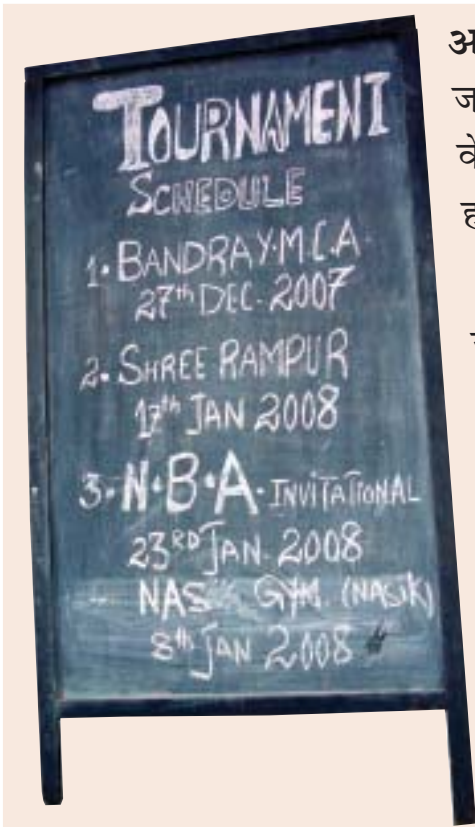 TOURNAMENT
SCHEDULE
1. BANDRA Y.M.C.A.
27th DEC. 2007
2. SHREE RAMPUR
17th JAN 2008
3. N.B.A. INVITATIONAL
23RD JAN. 2008
GYM. (NASIK)
8th JAN 2008